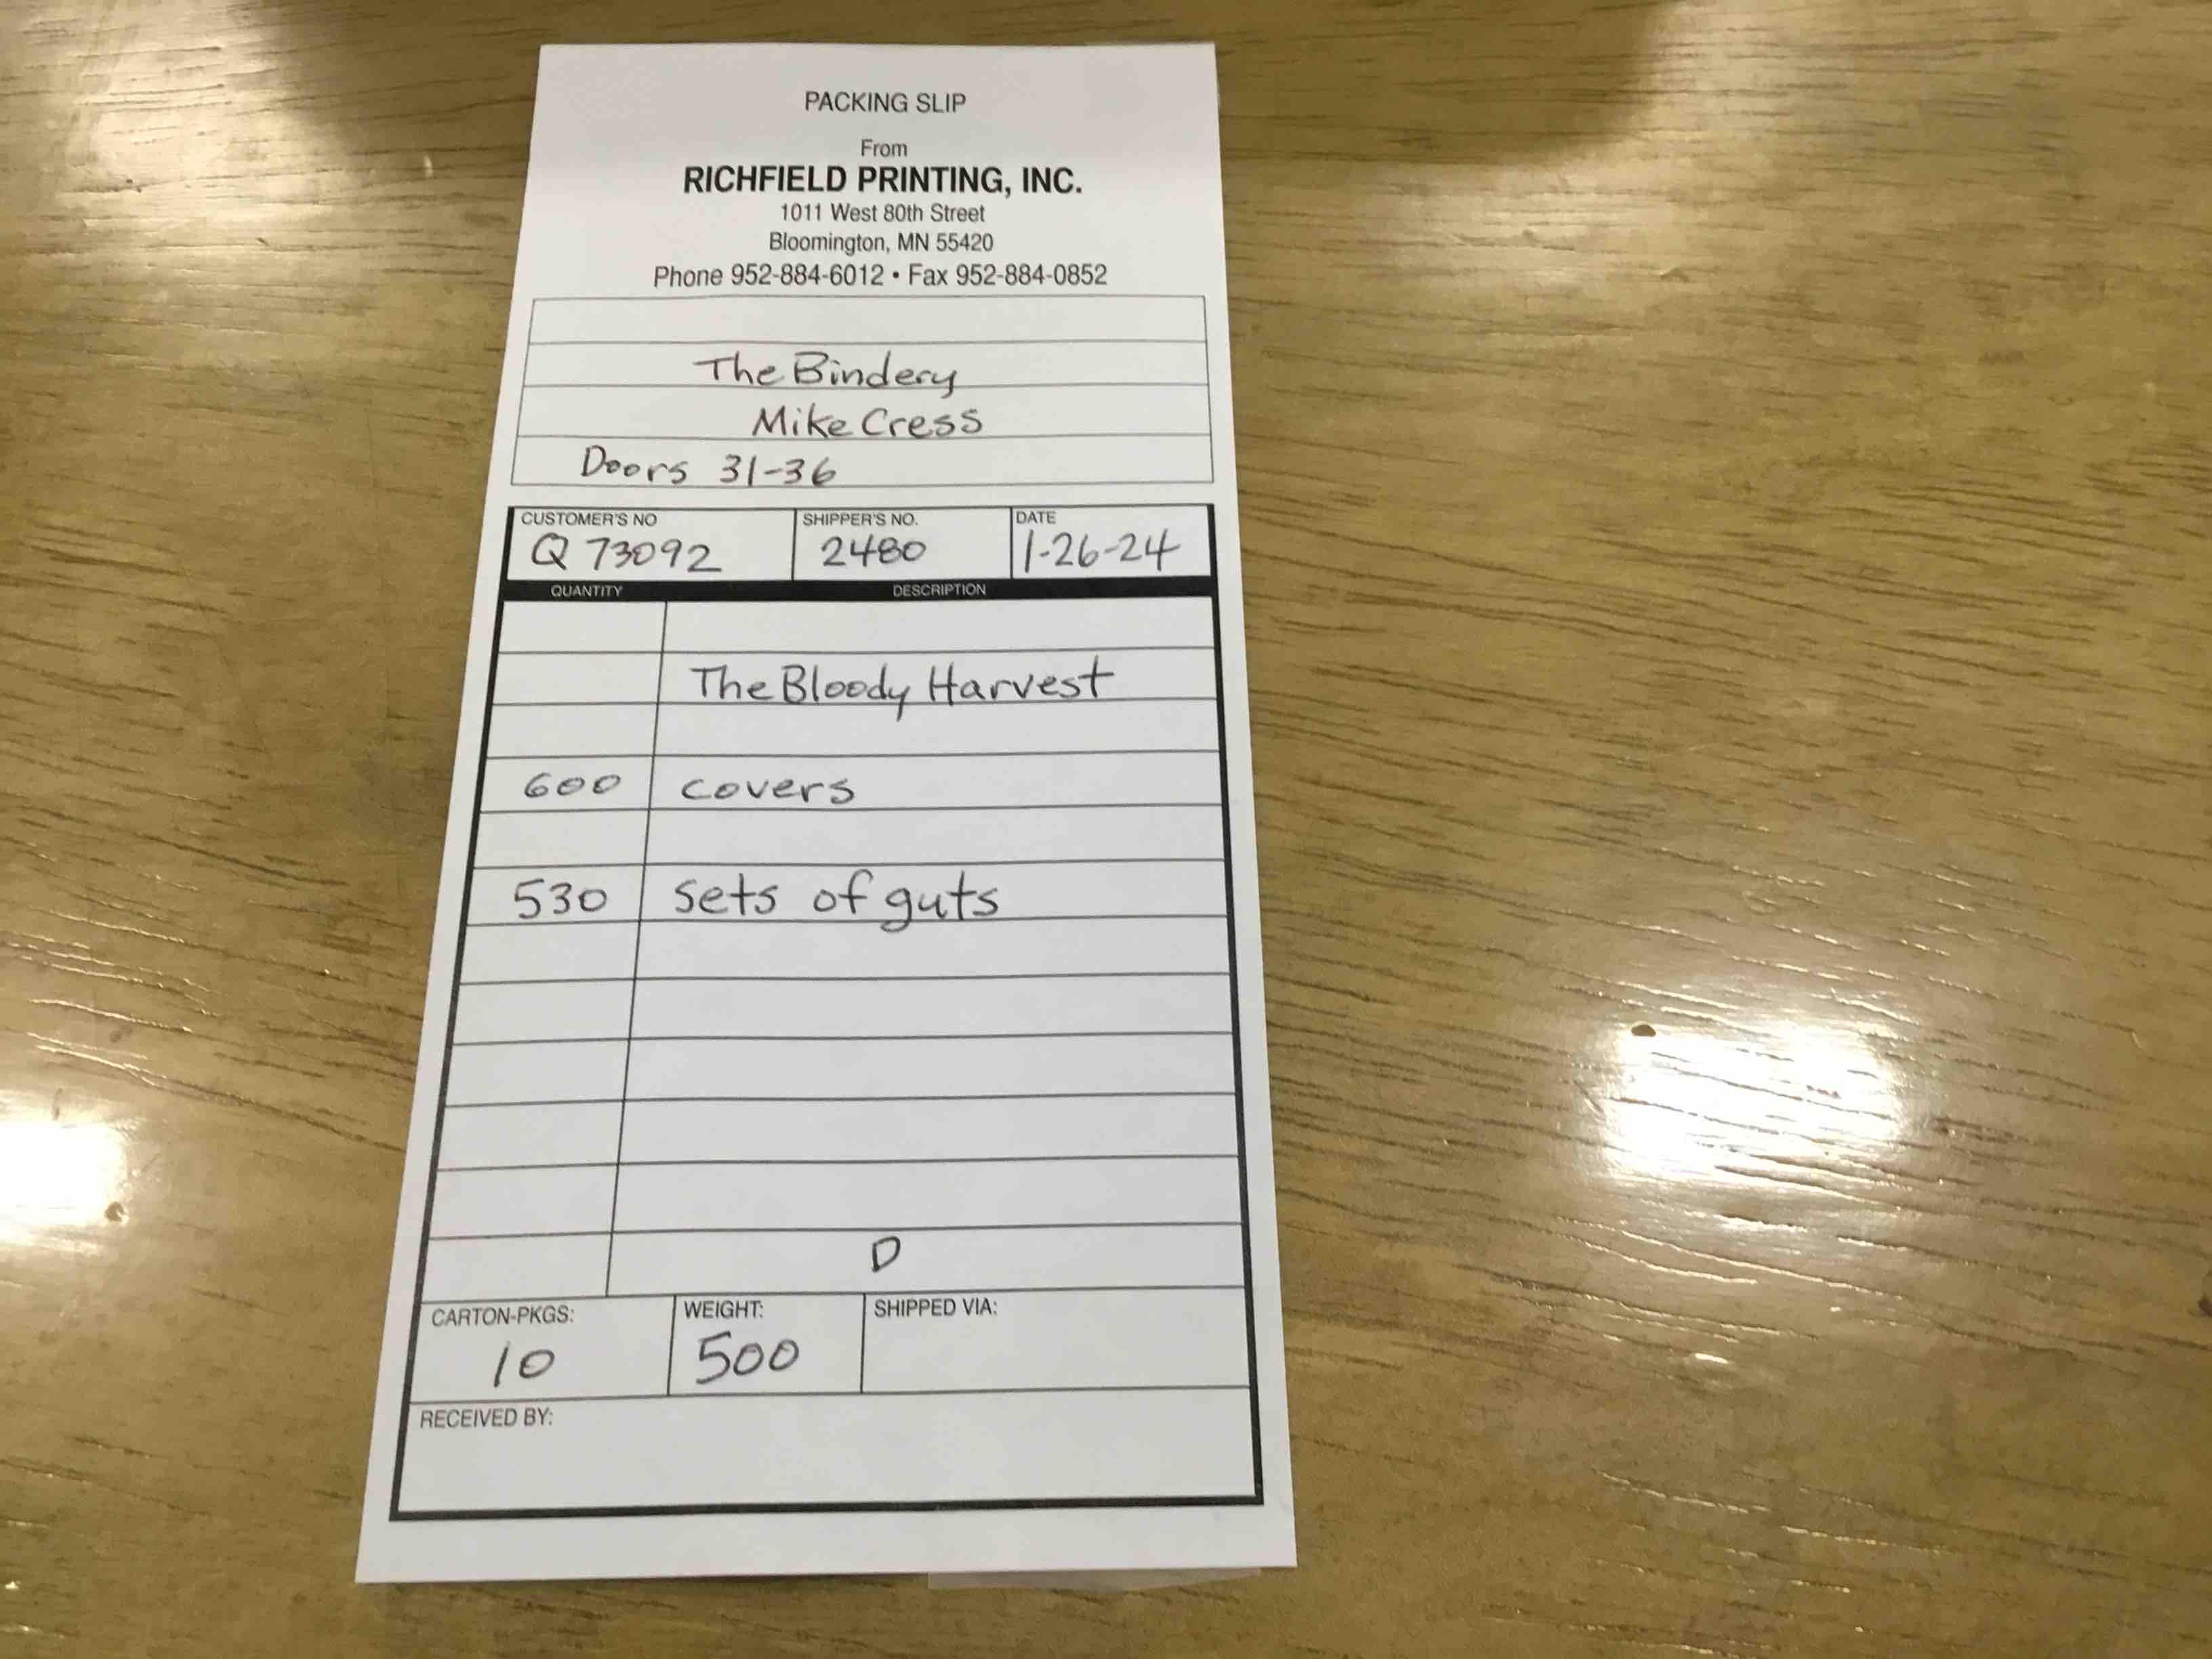 PACKING SLIP
From
RICHFIELD PRINTING, INC.
1011 West 80th Street
Bloomington, MN 55420
Phone 952-884-6012 • Fax 952-884-0852
The Bindery
Mike Cress
Doors 31-36
CUSTOMER'S NO SHIPPER'S NO. DATE
Q 73092 2480 1-26-24
QUANTITY DESCRIPTION
The Bloody Harvest
600 covers
530 sets of guts
D
CARTON-PKGS: WEIGHT: SHIPPED VIA:
10 500
RECEIVED BY: